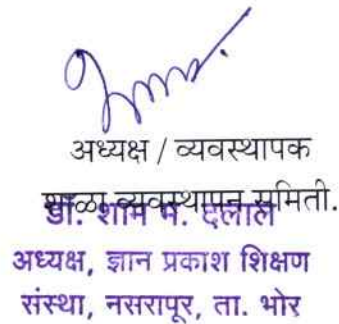 अध्यक्ष / व्यवस्थापक
शाळा व्यवस्थापन समिती.
डॉ. शाम म. दलाल
अध्यक्ष, ज्ञान प्रकाश शिक्षण
संस्था, नसरापूर, ता. भोर